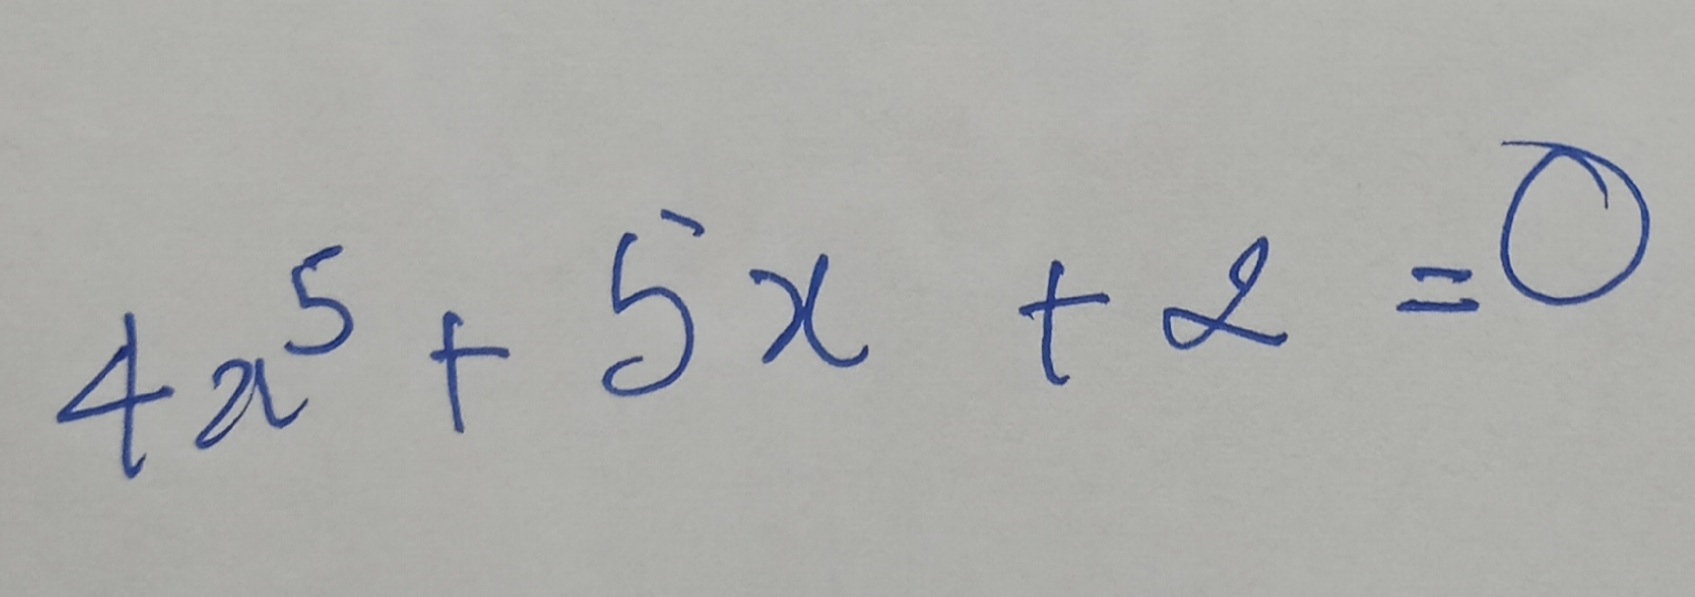 4x⁵ + 5x + 2 = 0